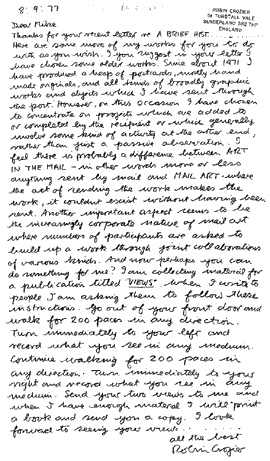 8.9.77
ROBIN CROZIER
5A TUNSTALL VALE
SUNDERLAND SR2 7HP
ENGLAND
Dear Mike
Thanks for your recent letter re A BRIEF HIST.
Here are some more of my works for you to do
with as you wish. As you suggest in your letter I
have chosen some older works. Since about 1971 I
have produced a heap of postcards, mostly hand
made originals, and all kinds of broadly graphic
works and objects which I have sent through
the post. However, on this occasion I have chosen
to concentrate on projects which are added to
or completed by the recipient or which generally
involve some kind of activity at the other end,
rather than just a passive observation. I
feel there is probably a difference between ART
IN THE MAIL - in other words more or less
anything sent by mail and MAIL ART where
the act of sending the work makes the
work, it couldn't exist without having been
sent. Another important aspect seems to be
the increasingly corporate nature of mail art
where numbers of participants are asked to
build up a work through joint collaborations
of various kinds. And now perhaps you can
do something for me? I am collecting material for
a publication titled "VIEWS". When I write to
people I am asking them to follow these
instructions: Go out of your front door and
walk for 200 paces in any direction.
Turn immediately to your left and
record what you see in any medium.
Continue walking for 200 paces in
any direction. Turn immediately to your
right and record what you see in any
medium. Send your two views to me and
when I have enough material I will print
a book and send you a copy. I look
forward to seeing your views...
all the best
Robin Crozier